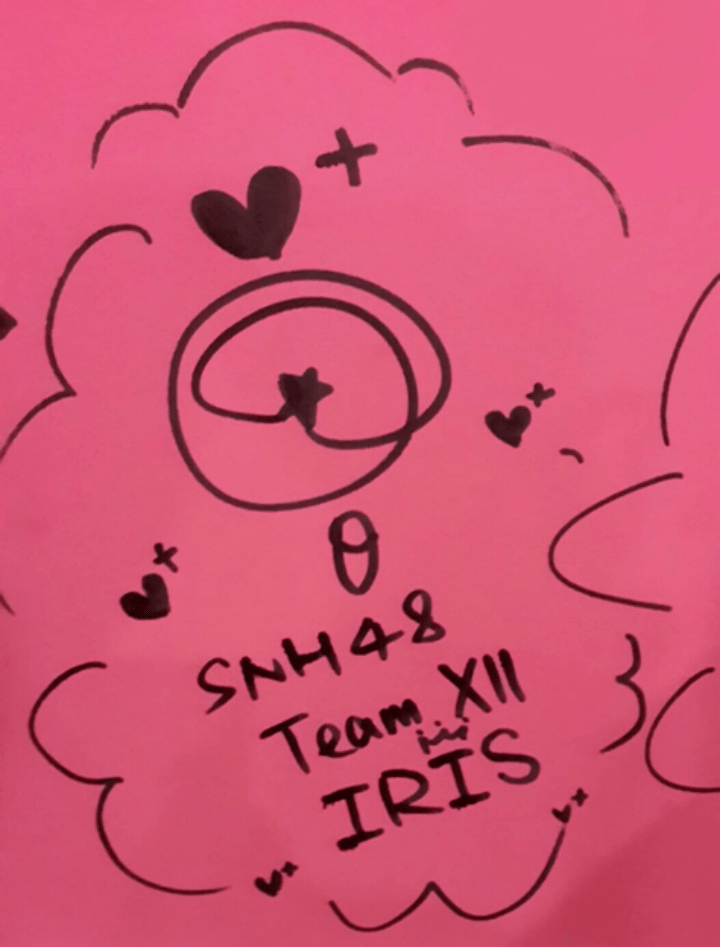 SNH48
Team XII
IRIS